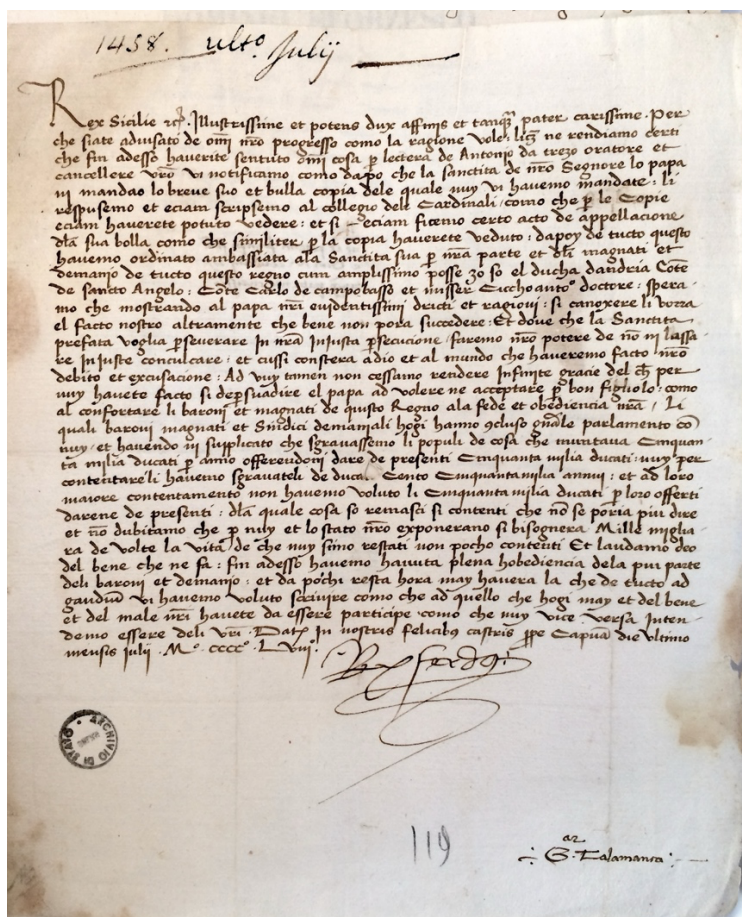 1458. ulto. Julij
Rex Sicilie etc. Illustrissime et potens dux affinis et tanq̃ pater carissime. Per
che siate advisato de om̃i nr̃o progresso como la ragione vole: licz̃ ne rendiamo certi
che fin adesso haverite sentuto om̃i cosa p̱ lectera de Antonio da trezo oratore et
cancellere vr̃o vi notificamo como dapo che la sanctita de nr̃o Segnore lo papa
ni mandao lo breve suo et bulla copia dele quale nuy vi havemo mandate: li
respusemo et eciam scripsemo al collegio deli Cardinali, como che p̱ le Copie
eciam haverete potuto vedere: et si eciam ficemo certo acto de appellacione
dl̃a sua bolla como che similiter p̱ la copia haverete veduto: dapoy de tucto questo
havemo ordinato ambassiata ala Sanctita sua p̱ nr̃a parte et dl̃i magnati et
demanio de tucto questo regno cum amplissimo posse zo so el ducha dandria Cõte
de sancto Angelo: Cõte Carlo de campobasso et misser Cicchoantoº doctore: spera-
mo che mostrando al papa nr̃i evidentissimi dricti et ragioni: si canoxere li vorra
el facto nostro altramente che bene non pora succedere: Et dove che la Sanctita
prefata voglia p̱severare in nr̃a iniusta p̱secucione, faremo nr̃o potere de nõ ni lassa-
re iniuste conculcare: et cussi constera adio et al mundo che haveremo facto nr̃o
debito et excusacione: Ad vuy tamen non cessamo rendere infinite gracie del q̃ per
nuy havete facto si de p̱suadire el papa ad volere ne acceptare p̱ bon figliolo: como
al confortare li baroni et magnati de quisto Regno ala fede et obediencia nr̃a, Li
quali baroni magnati et Sindici demaniali hogi hanno 9cluso gñale parlamento cõ
nuy, et havendo ni supplicato che sgravassemo li populi de cosa che muntava Cinquan-
ta milia ducati p̱ anno offerendoni dare de presenti Cinquanta milia ducati: nuy per
contentareli havemo sgravateli de ducati Cento Cinquantamilia annui: et ad loro
maiore contentamento non havemo voluto li Cinquanta milia ducati p̱ loro offerti
darene de presenti: dl̃a quale cosa so remasti si contenti che nõ se poria piu dire
et nõ dubitamo che p̱ nuy et lo stato nr̃o exponerano si bisognera Mille miglia-
ra de volte la vita, de che nuy simo restati non pocho contenti Et laudamo deo
del bene che ne fa: fin adesso havemo havuta plena hobediencia dela piu parte
deli baroni et demanio: et da pochi resta hora may havera la che de tucto ad
gaudiũ vi havemo voluto scrivire como che ad quello che hogi may et del bene
et del male nr̃i havete da essere participe como che nuy vice versa inten-
demo essere deli vr̃i. Dat. In nostris felicibus castris ppe Capuã die ultimo
mensis iulij. Mº CCCCº LVIIIº.
Rex Ferdinandus
ARCHIVIO DI STATO
MILANO
119
G. Talamanca